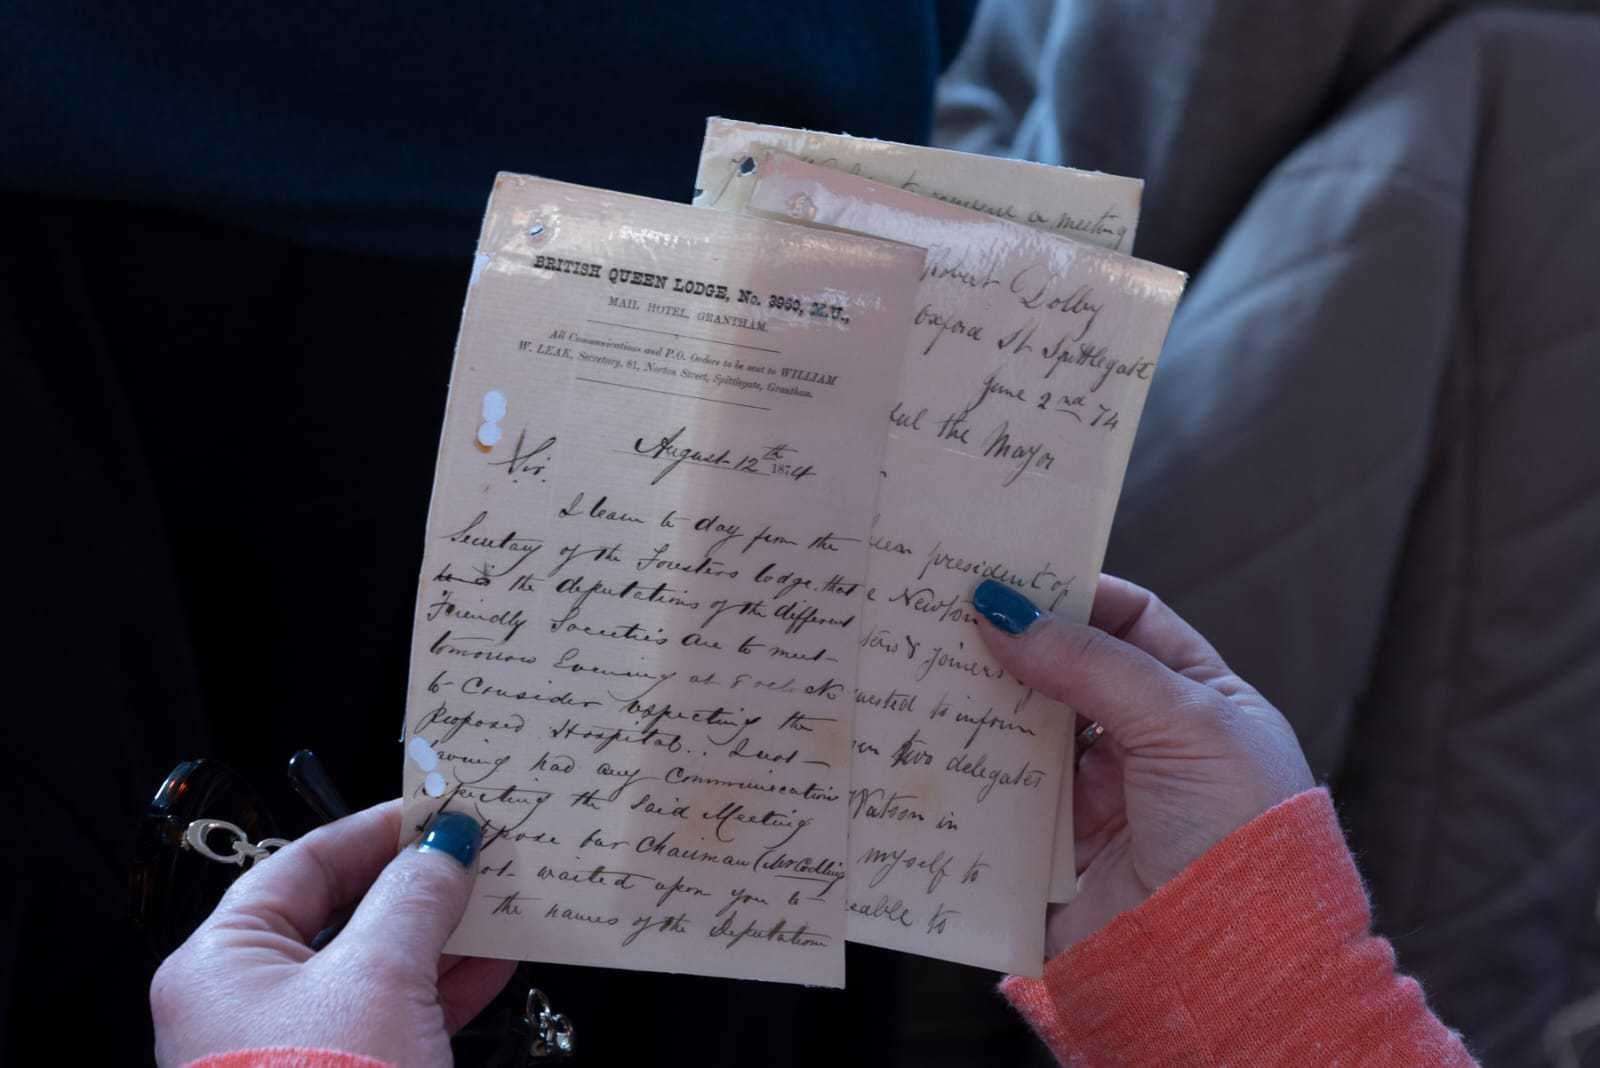 BRITISH QUEEN LODGE, No. 3960, M.U.,
MAIL HOTEL, GRANTHAM.
All Communications and P.O. Orders to be sent to WILLIAM
W. LEAK, Secretary, 81, Norton Street, Spittlegate, Grantham.
August 12th 1874
Sir.
I learn to day from the
Secretary of the Foresters lodge, that
the deputations of the different
Friendly Societies are to meet
tomorrow Evening at 8 oclock
to Consider respecting the
proposed Hospital. I not
having had any Communication
respecting the said Meeting
suppose our Chairman (Mr Codling
not waited upon you to
the names of the Deputation
convene a meeting
Robert Dolby
Oxford St Spittlegate
June 2nd 74
the Mayor
president of
Newton
& Joiners
to inform
two delegates
Watson in
myself to
to